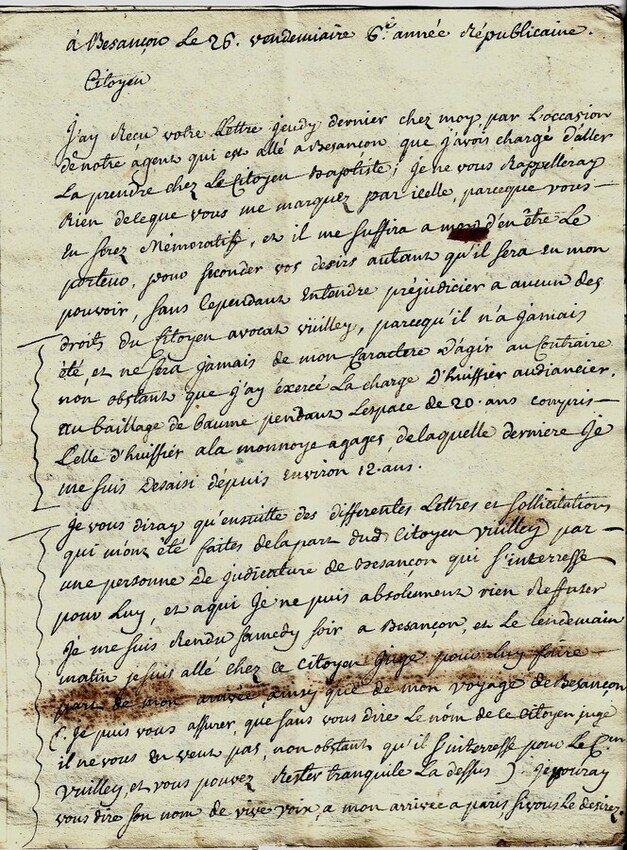 à Besançon Le 26. vendemiaire 6.e année Républicaine.
Citoyen
J'ay Recu votre Lettre jeudy dernier chez moy par L'occasion
de notre agent qui est allé a Besançon que j'avois chargé d'aller
La prendre chez Le Citoyen Baptiste; Je ne vous Rappelleray
Rien de ce que vous me marquez par icelle, parceque vous
En serez Mémoratif, et il me suffira a d'en être Le
porteur, pour seconder vos desirs autant qu'il sera En mon
pouvoir, sans Cependant Entendre préjudicier a aucun des
droits du Citoyen avocat vuilley, parcequ'il n'a jamais
été, et ne sera jamais de mon Caractere D'agir au Contraire
non obstant que j'ay éxercé La charge D'huissier audiancier.
au baillage de baume pendant L'espace de 20. ans compris
Celle d'huissier a la monnoye a gages, de laquelle derniere Je
me suis Desaisi dépuis Environ 12. ans.
Je vous diray qu'ensuitte des differentes Lettres et Sollicitations
qui m'ont été faites de la part dud. Citoyen vuilley par
une personne De judicature de Besançon qui s'interresse
pour Luy, et a qui Je ne puis absolument rien Reffuser
Je me suis Rendu samedy soir a Besançon, et Le lendemain
matin je suis allé chez ce Citoyen Juge pour Luy faire
part de mon arrivée, ainsy que de mon voyage de Besançon
(. Je puis vous assurer, que sans vous dire Le nom de ce Citoyen juge
il ne vous en veut pas, non obstant qu'il s'interresse pour Le C.en
vuilley, et vous pouvez Rester tranquile La dessus ) Je pouray
vous dire son nom de vive voix, a mon arrivée a paris, si vous Le desirez.